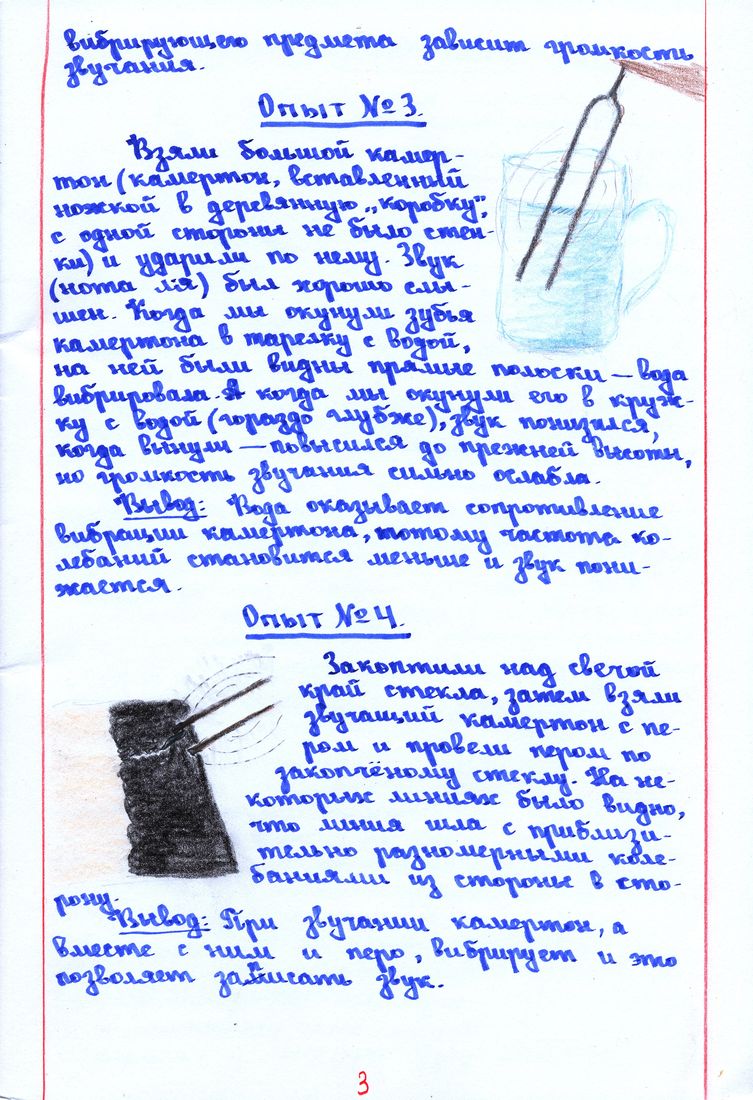 вибрирующего предмета зависит громкость
звучания.
Опыт №3.
Взяли большой камер-
тон (камертон, вставленный
ножкой в деревянную „коробку",
с одной стороны не было стен-
ки) и ударили по нему. Звук
(нота ля) был хорошо слы-
шен. Когда мы окунули зубья
камертона в тарелку с водой,
на ней были видны прямые полоски — вода
вибрировала. А когда мы окунули его в круж-
ку с водой (гораздо глубже), звук понизился,
когда вынули — повысился до прежней высоты,
но громкость звучания сильно ослабла.
Вывод: Вода оказывает сопротивление
вибрации камертона, потому частота ко-
лебаний становится меньше и звук пони-
жается.
Опыт №4.
Закоптили над свечой
край стекла, затем взяли
звучащий камертон с пе-
ром и провели пером по
закопчёному стеклу. На не-
которых линиях было видно,
что линия шла с приблизи-
тельно разномерными коле-
баниями из стороны в сто-
рону.
Вывод: При звучании камертон, а
вместе с ним и перо, вибрирует и это
позволяет записать звук.
3